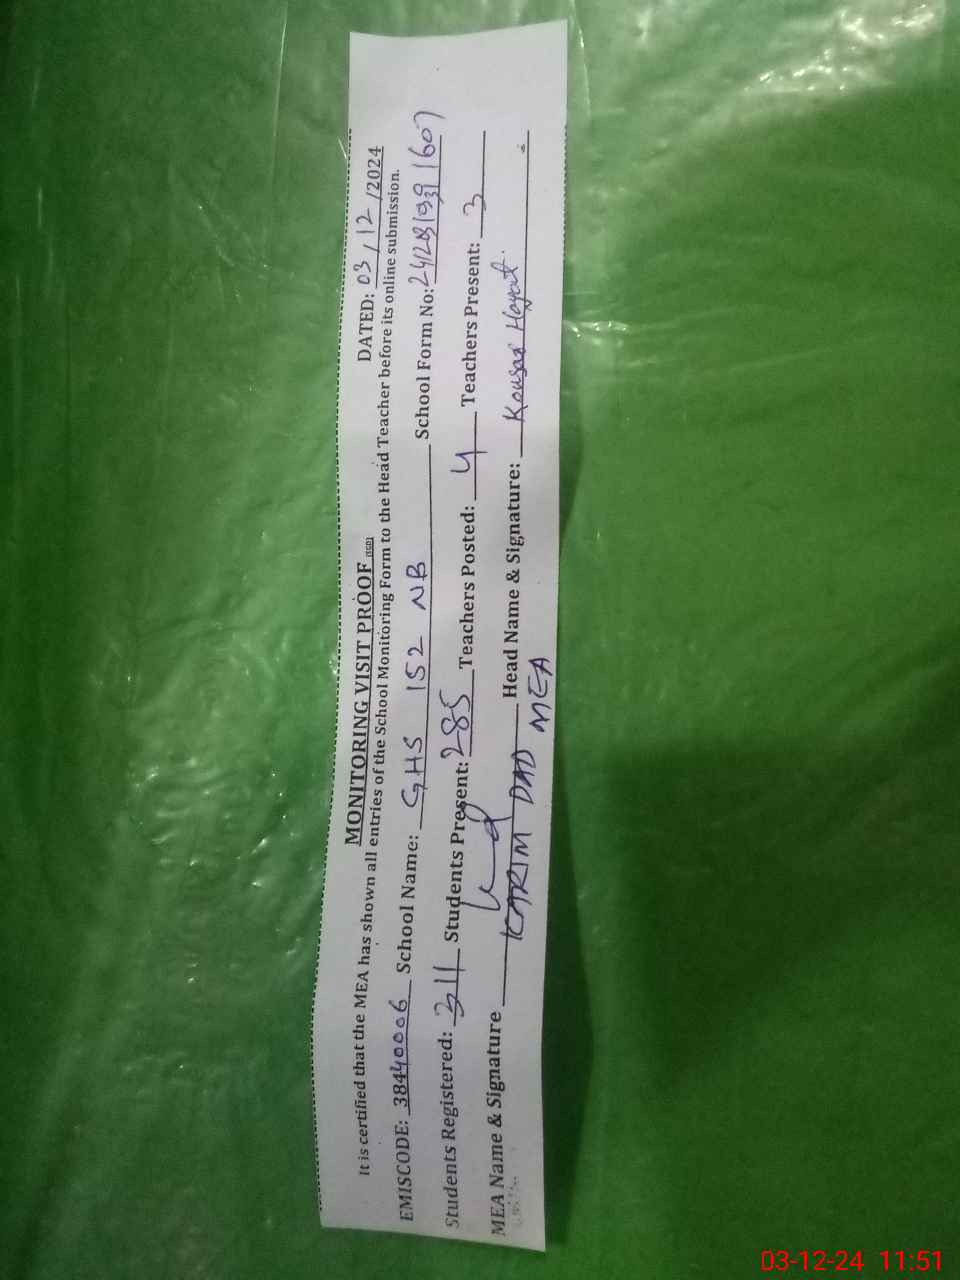 MONITORING VISIT PROOF (SED) DATED: 03/12/2024
It is certified that the MEA has shown all entries of the School Monitoring Form to the Head Teacher before its online submission.
EMISCODE: 38440006 School Name: GHS 152 NB School Form No: 1607
Students Registered: 311 Students Present: 285 Teachers Posted: 4 Teachers Present: 3
MEA Name & Signature KARIM DAD Head Name & Signature: Kousar Hayat
MEA
03-12-24 11:51